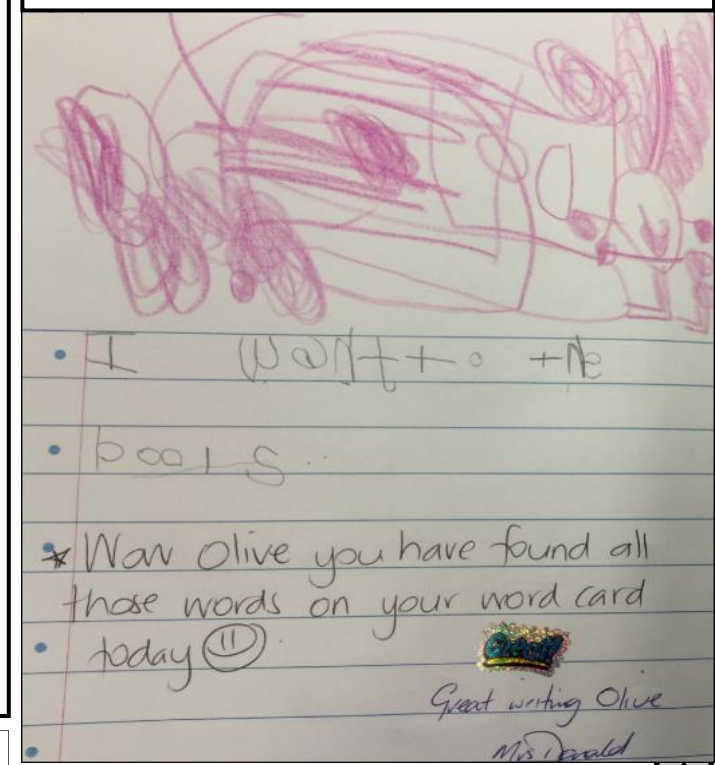 I want to the
pools..
* Wow Olive you have found all
those words on your word card
today
Great!
Great writing Olive
Mrs Donald